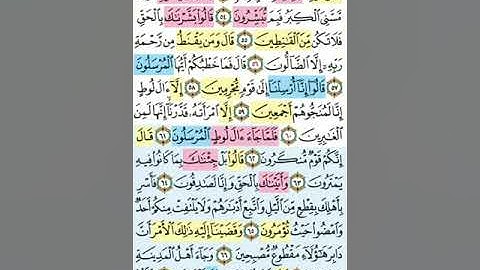 مَّسَّنِىَ ٱلْكِبَرُ فَبِمَ تُبَشِّرُونَ ٥٤ قَالُوا۟ بَشَّرْنَـٰكَ بِٱلْحَقِّ
فَلَا تَكُن مِّنَ ٱلْقَـٰنِطِينَ ٥٥ قَالَ وَمَن يَقْنَطُ مِن رَّحْمَةِ
رَبِّهِۦٓ إِلَّا ٱلضَّآلُّونَ ٥٦ قَالَ فَمَا خَطْبُكُمْ أَيُّهَا ٱلْمُرْسَلُونَ
٥٧ قَالُوٓا۟ إِنَّآ أُرْسِلْنَآ إِلَىٰ قَوْمٍ مُّجْرِمِينَ ٥٨ إِلَّآ ءَالَ لُوطٍ
إِنَّا لَمُنَجُّوهُمْ أَجْمَعِينَ ٥٩ إِلَّا ٱمْرَأَتَهُۥ قَدَّرْنَآ إِنَّهَا لَمِنَ
ٱلْغَـٰبِرِينَ ٦٠ فَلَمَّا جَآءَ ءَالَ لُوطٍ ٱلْمُرْسَلُونَ ٦١ قَالَ
إِنَّكُمْ قَوْمٌ مُّنكَرُونَ ٦٢ قَالُوا۟ بَلْ جِئْنَـٰكَ بِمَا كَانُوا۟ فِيهِ
يَمْتَرُونَ ٦٣ وَأَتَيْنَـٰكَ بِٱلْحَقِّ وَإِنَّا لَصَـٰدِقُونَ ٦٤ فَأَسْرِ
بِأَهْلِكَ بِقِطْعٍ مِّنَ ٱلَّيْلِ وَٱتَّبِعْ أَدْبَـٰرَهُمْ وَلَا يَلْتَفِتْ مِنكُمْ أَحَدٌ
وَٱمْضُوا۟ حَيْثُ تُؤْمَرُونَ ٦٥ وَقَضَيْنَآ إِلَيْهِ ذَٰلِكَ ٱلْأَمْرَ أَنَّ
دَابِرَ هَـٰٓؤُلَآءِ مَقْطُوعٌ مُّصْبِحِينَ ٦٦ وَجَآءَ أَهْلُ ٱلْمَدِينَةِ